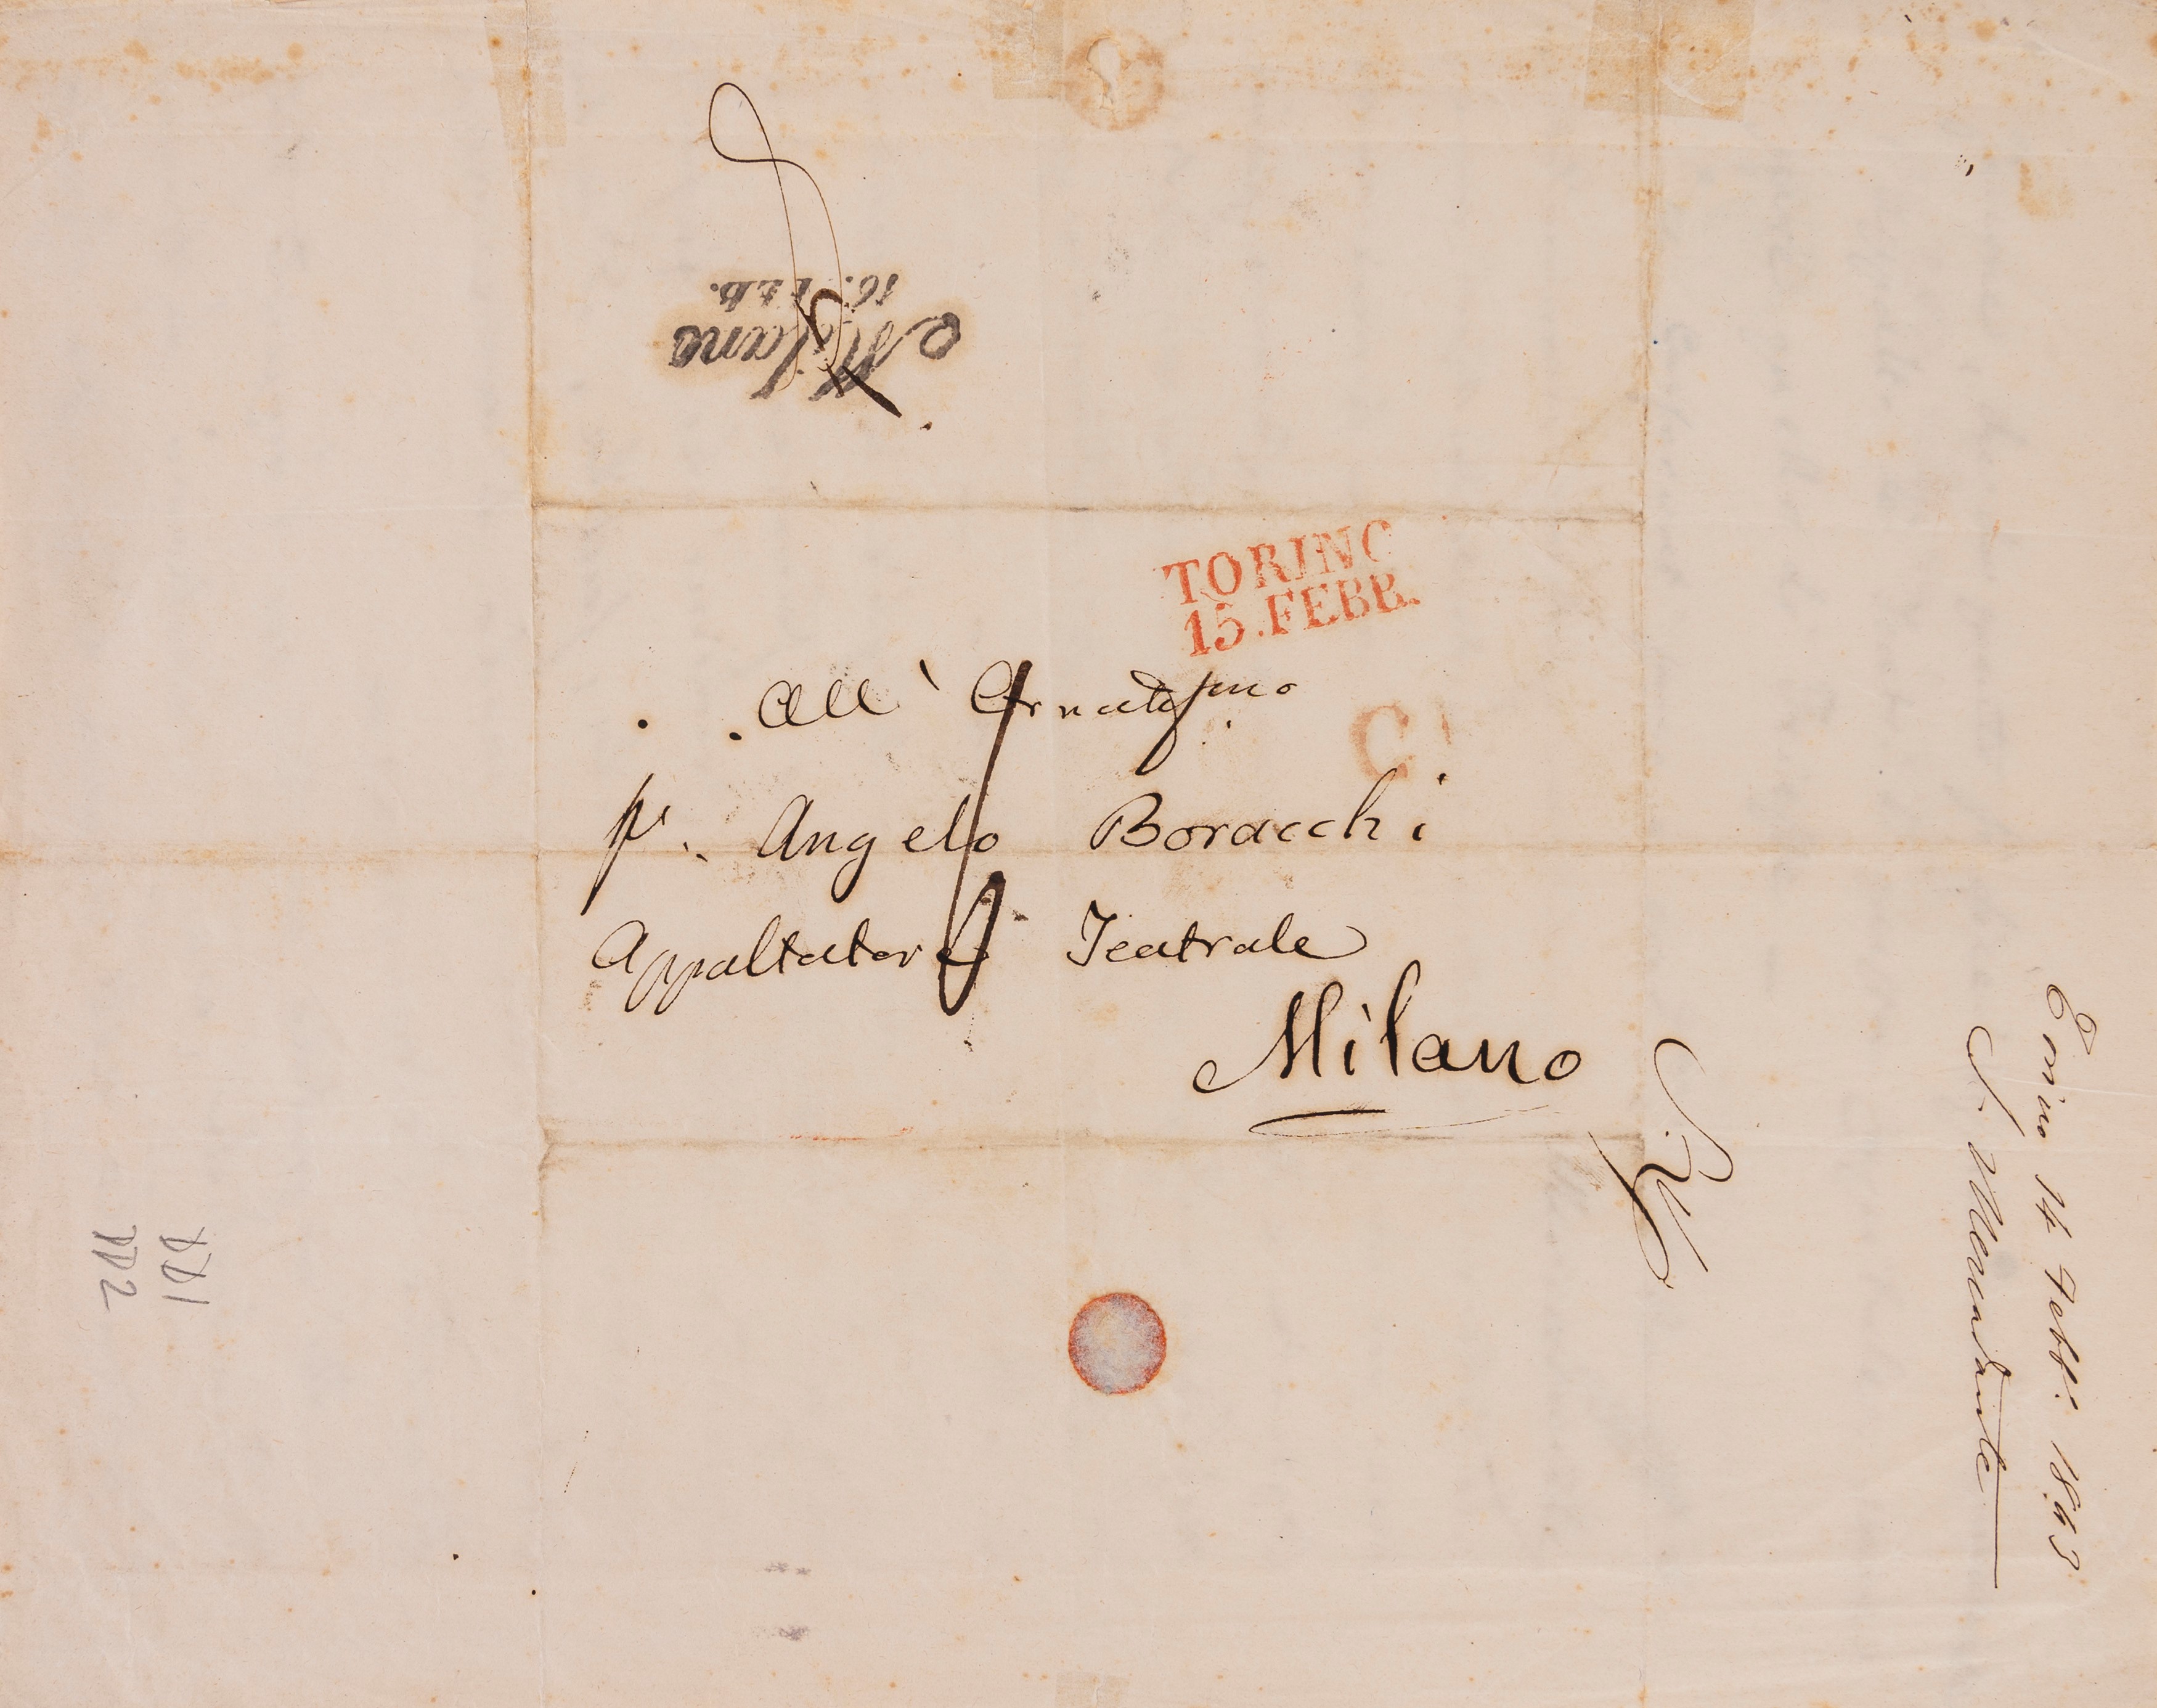 Milano
16. Feb.
TORINO
15.FEBB.
C
All' Ornatissimo
Sr. Angelo Boracchi
Appaltatore Teatrale
Milano
Torino 14 Febb: 1843
S. Mercadante